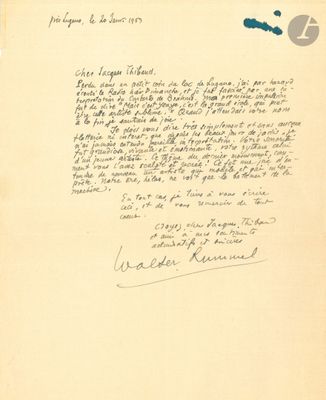 près Lugano, le 20 Janv. 1953
Cher Jacques Thibaud.
Perdu dans un petit coin du lac de Lugano, j'ai par hasard
écouté le Radio hier Dimanche, et je fus fasciné par une in-
terprétation du Concerto de Brahms. Mon première impulsion
fut de dire "Mais c'est Ysaye, c'est la grande école, qui peut
être cette artiste sublime." Quand j'entendais votre nom
à la fin je sautais de joie.
Je peux vous dire très simplement et sans aucune
flatterie ni interet, que depuis les beaux jours de jadis, je
n'ai jamais entendu pareille interprétation. Votre
fut grandiose, vivante et votre rythme celui
d'un jeune artiste. Le thème du dernier mouvement, com-
ment vous l'avez
de nouveau un artiste qui modèle et qui
Notre ère, hélas, ne voit que le de la
machine.
En tout cas, je tiens à vous écrire
ceci, et de vous remercier de tout
coeur.
Croyez, cher Jacques Thibaud
et ami à mes sentiments
admiratifs et sincères
Walter Rummel